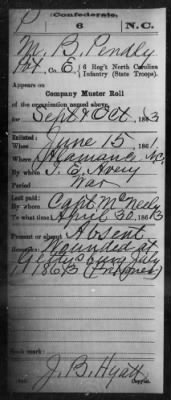 P Confederate.
6 N.C.
M. B. Pendly
Pvt., Co. E, 6 Reg't North Carolina
Infantry (State Troops).
Appears on
Company Muster Roll
of the organization named above,
for Sept & Oct, 1863
Enlisted:
When June 15, 1861
Where Alamance N.C.
By whom I. E. Avery
Period War
Last paid:
By whom Capt McNeely
To what time April 30, 1863
Present or absent Absent
Remarks: Wounded at
Gettysburg July
1 1863 (Prisoner)
Book mark:
J. B. Hyatt
Copyist.